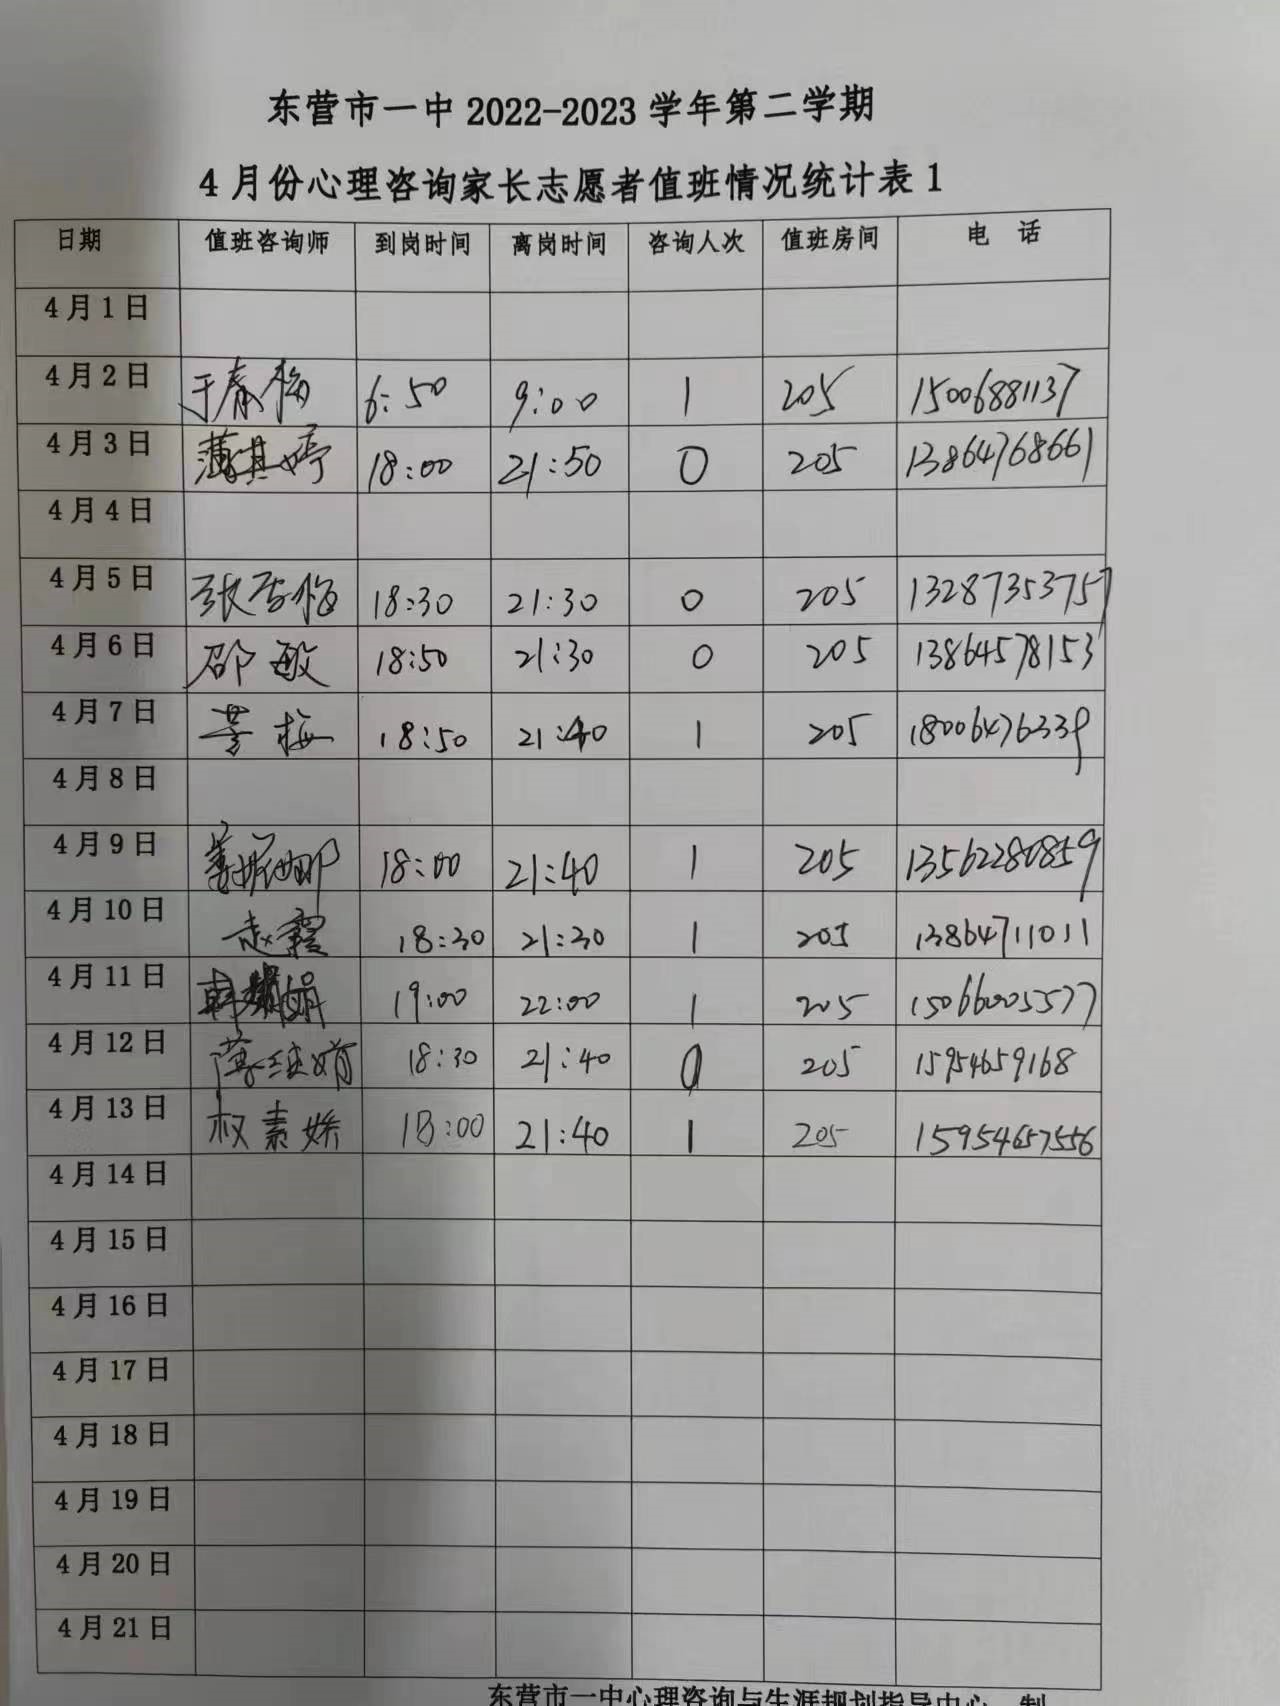 东营市一中 2022-2023 学年第二学期
4 月份心理咨询家长志愿者值班情况统计表 1
日期 值班咨询师 到岗时间 离岗时间 咨询人次 值班房间 电 话
4 月 1 日
4 月 2 日 于春梅 6:50 9:00 1 205 15006881137
4 月 3 日 蒲其婷 18:00 21:50 0 205 13864768661
4 月 4 日
4 月 5 日 张 梅 18:30 21:30 0 205 13287353757
4 月 6 日 邵敏 18:50 21:30 0 205 13864578153
4 月 7 日 梅 18:50 21:40 1 205 18006476339
4 月 8 日
4 月 9 日 姜娜 18:00 21:40 1 205 13562280859
4 月 10 日 赵霞 18:30 21:30 1 205 13864711011
4 月 11 日 韩 娟 19:00 22:00 1 205 15066005577
4 月 12 日 18:30 21:40 0 205 15954659168
4 月 13 日 权素娇 18:00 21:40 1 205 15954657556
4 月 14 日
4 月 15 日
4 月 16 日
4 月 17 日
4 月 18 日
4 月 19 日
4 月 20 日
4 月 21 日
东营市一中心理咨询与生涯规划指导中心 制